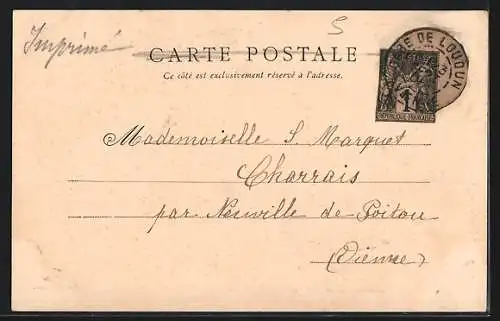 5
Imprimé
CARTE POSTALE
Ce côté est exclusivement réservé à l'adresse.
RE DE LOUDUN
1
REPUBLIQUE FRANÇAISE
Mademoiselle S. Marquet
Charrais
par Neuville de Poitou
(Vienne)